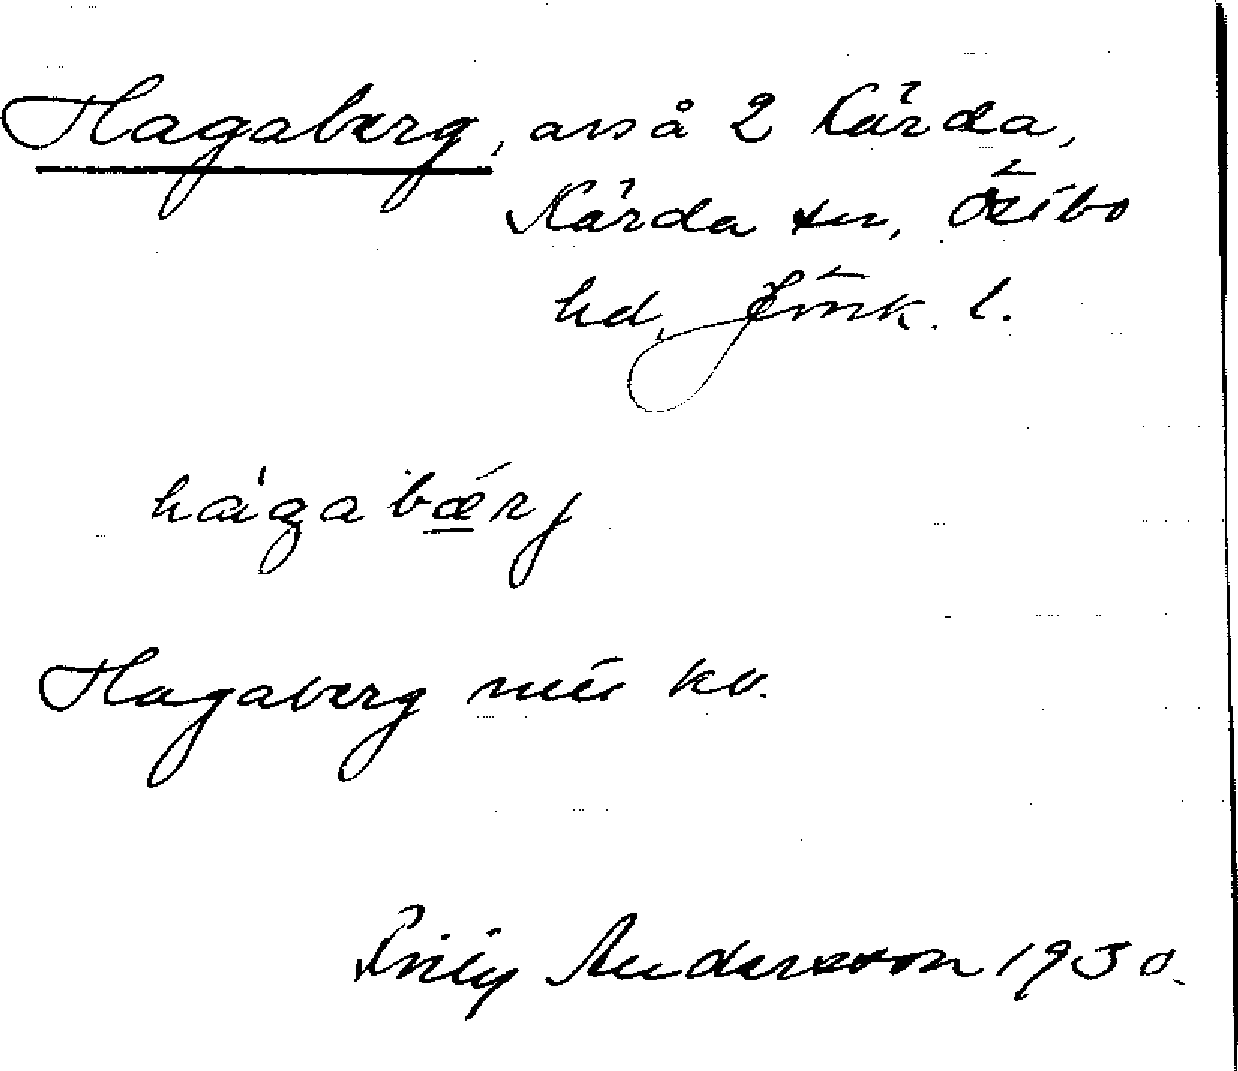 Hagaberg, avs å 2 Kärda,
Kärda sn, Östbo
hd, Jönk. l.
hágabæ̀rj
Hagaberg
Andersson 1930.